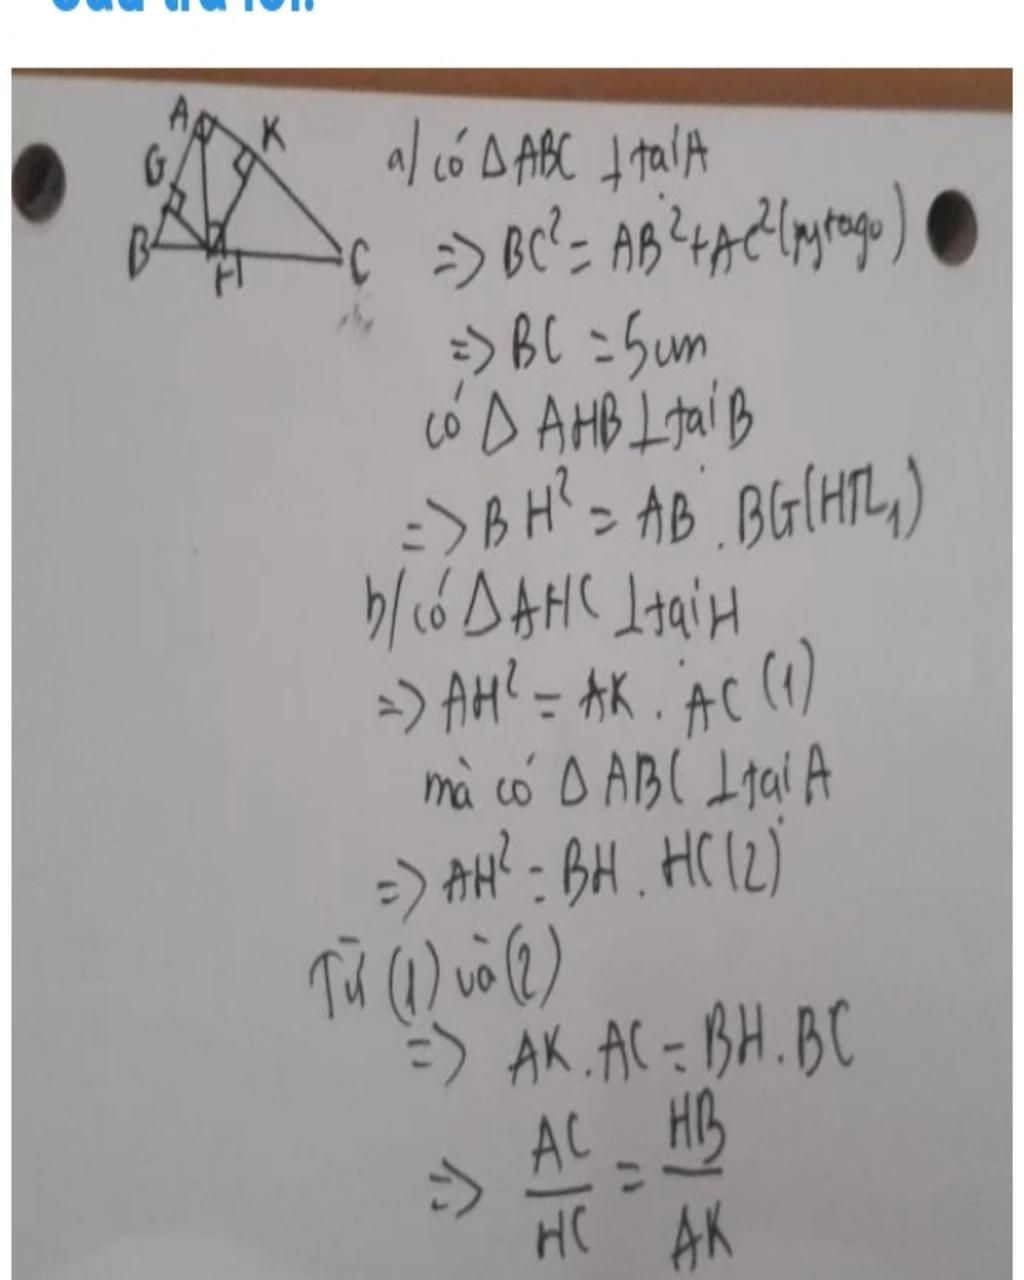 A
K
G
B
H
C
a/ có Δ ABC ⊥ tại A
=> BC² = AB² + AC² (pytago)
=> BC = 5cm
có Δ AHB ⊥ tại B
=> BH² = AB . BG (HTL1)
b/ có Δ AHC ⊥ tại H
=> AH² = AK . AC (1)
mà có Δ ABC ⊥ tại A
=> AH² = BH . HC (2)
Từ (1) và (2)
=> AK . AC = BH . BC
=> AC/HC = HB/AK